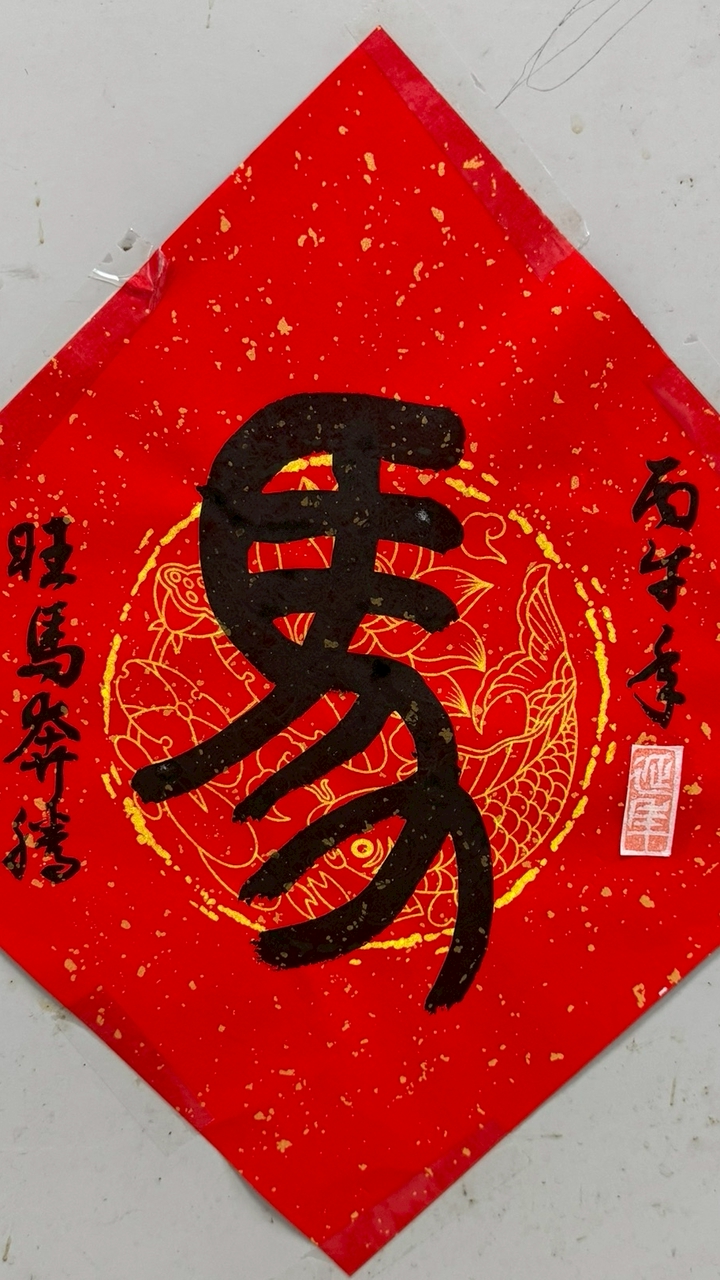 丙午年
馬
旺馬奔騰